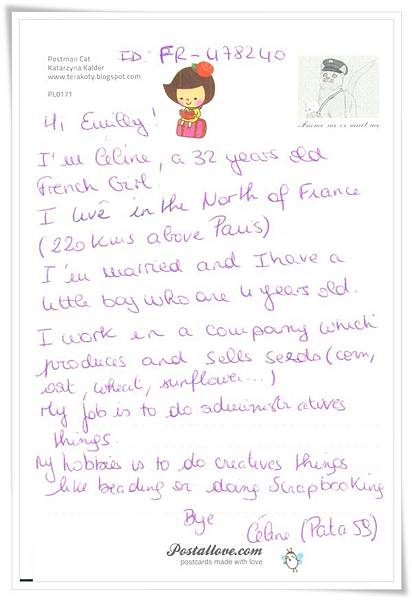 Postman Cat
Katarzyna Kalder
www.terakoty.blogspot.com
PL0171
ID: FR-478240
Hi Emilly!
I'm Céline, a 32 years old
French Girl.
I live in the North of France
(220 kms above Paris)
I'm married and I have a
little boy who are 4 years old.
I work in a company which
produces and sells seeds (corn,
oat, wheat, sunflower...)
My job is to do administratives
things.
My hobbies is to do creatives things
like beading or doing Scrapbooking
Bye
Céline (Pata59)
Postallove.com
postcards made with love